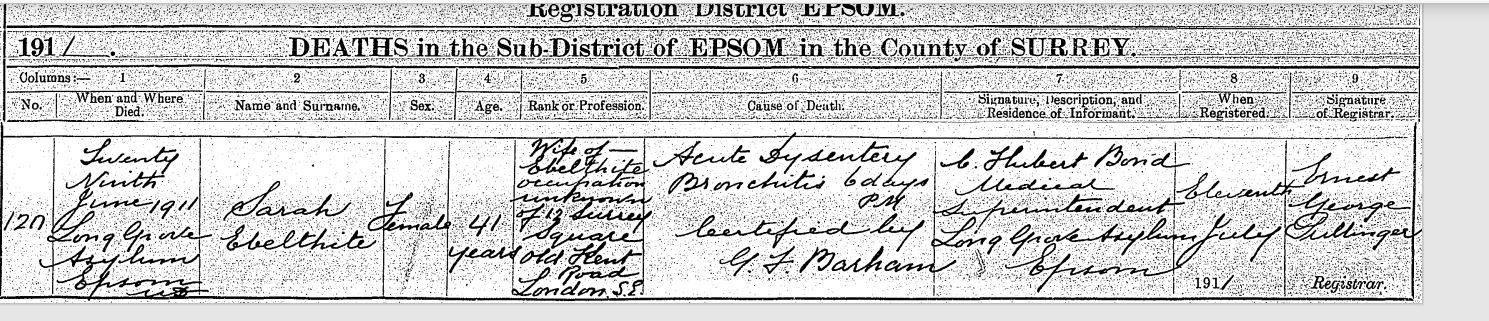 Registration District EPSOM.
191/ . DEATHS in the Sub-District of EPSOM in the County of SURREY.
Columns:— 1 2 3 4 5 6 7 8 9
No. When and Where Died. Name and Surname. Sex. Age. Rank or Profession. Cause of Death. Signature, Description, and Residence of Informant. When Registered. Signature of Registrar.
120
Twenty
Ninth
June 1911
Long Grove
Asylum
Epsom
Sarah
Ebelthite
Female
41
years
Wife of —
Ebelthite
occupation
unknown
of 12 Surrey
Square
Old Kent
Road
London S.E.
Acute Dysentery
Bronchitis 6 days
P.M
Certified by
G. F. Barham
C. Hubert Bond
Medical
Superintendent
Long Grove Asylum
Epsom
Eleventh
July
191/
Ernest
George
Gullinger
Registrar.